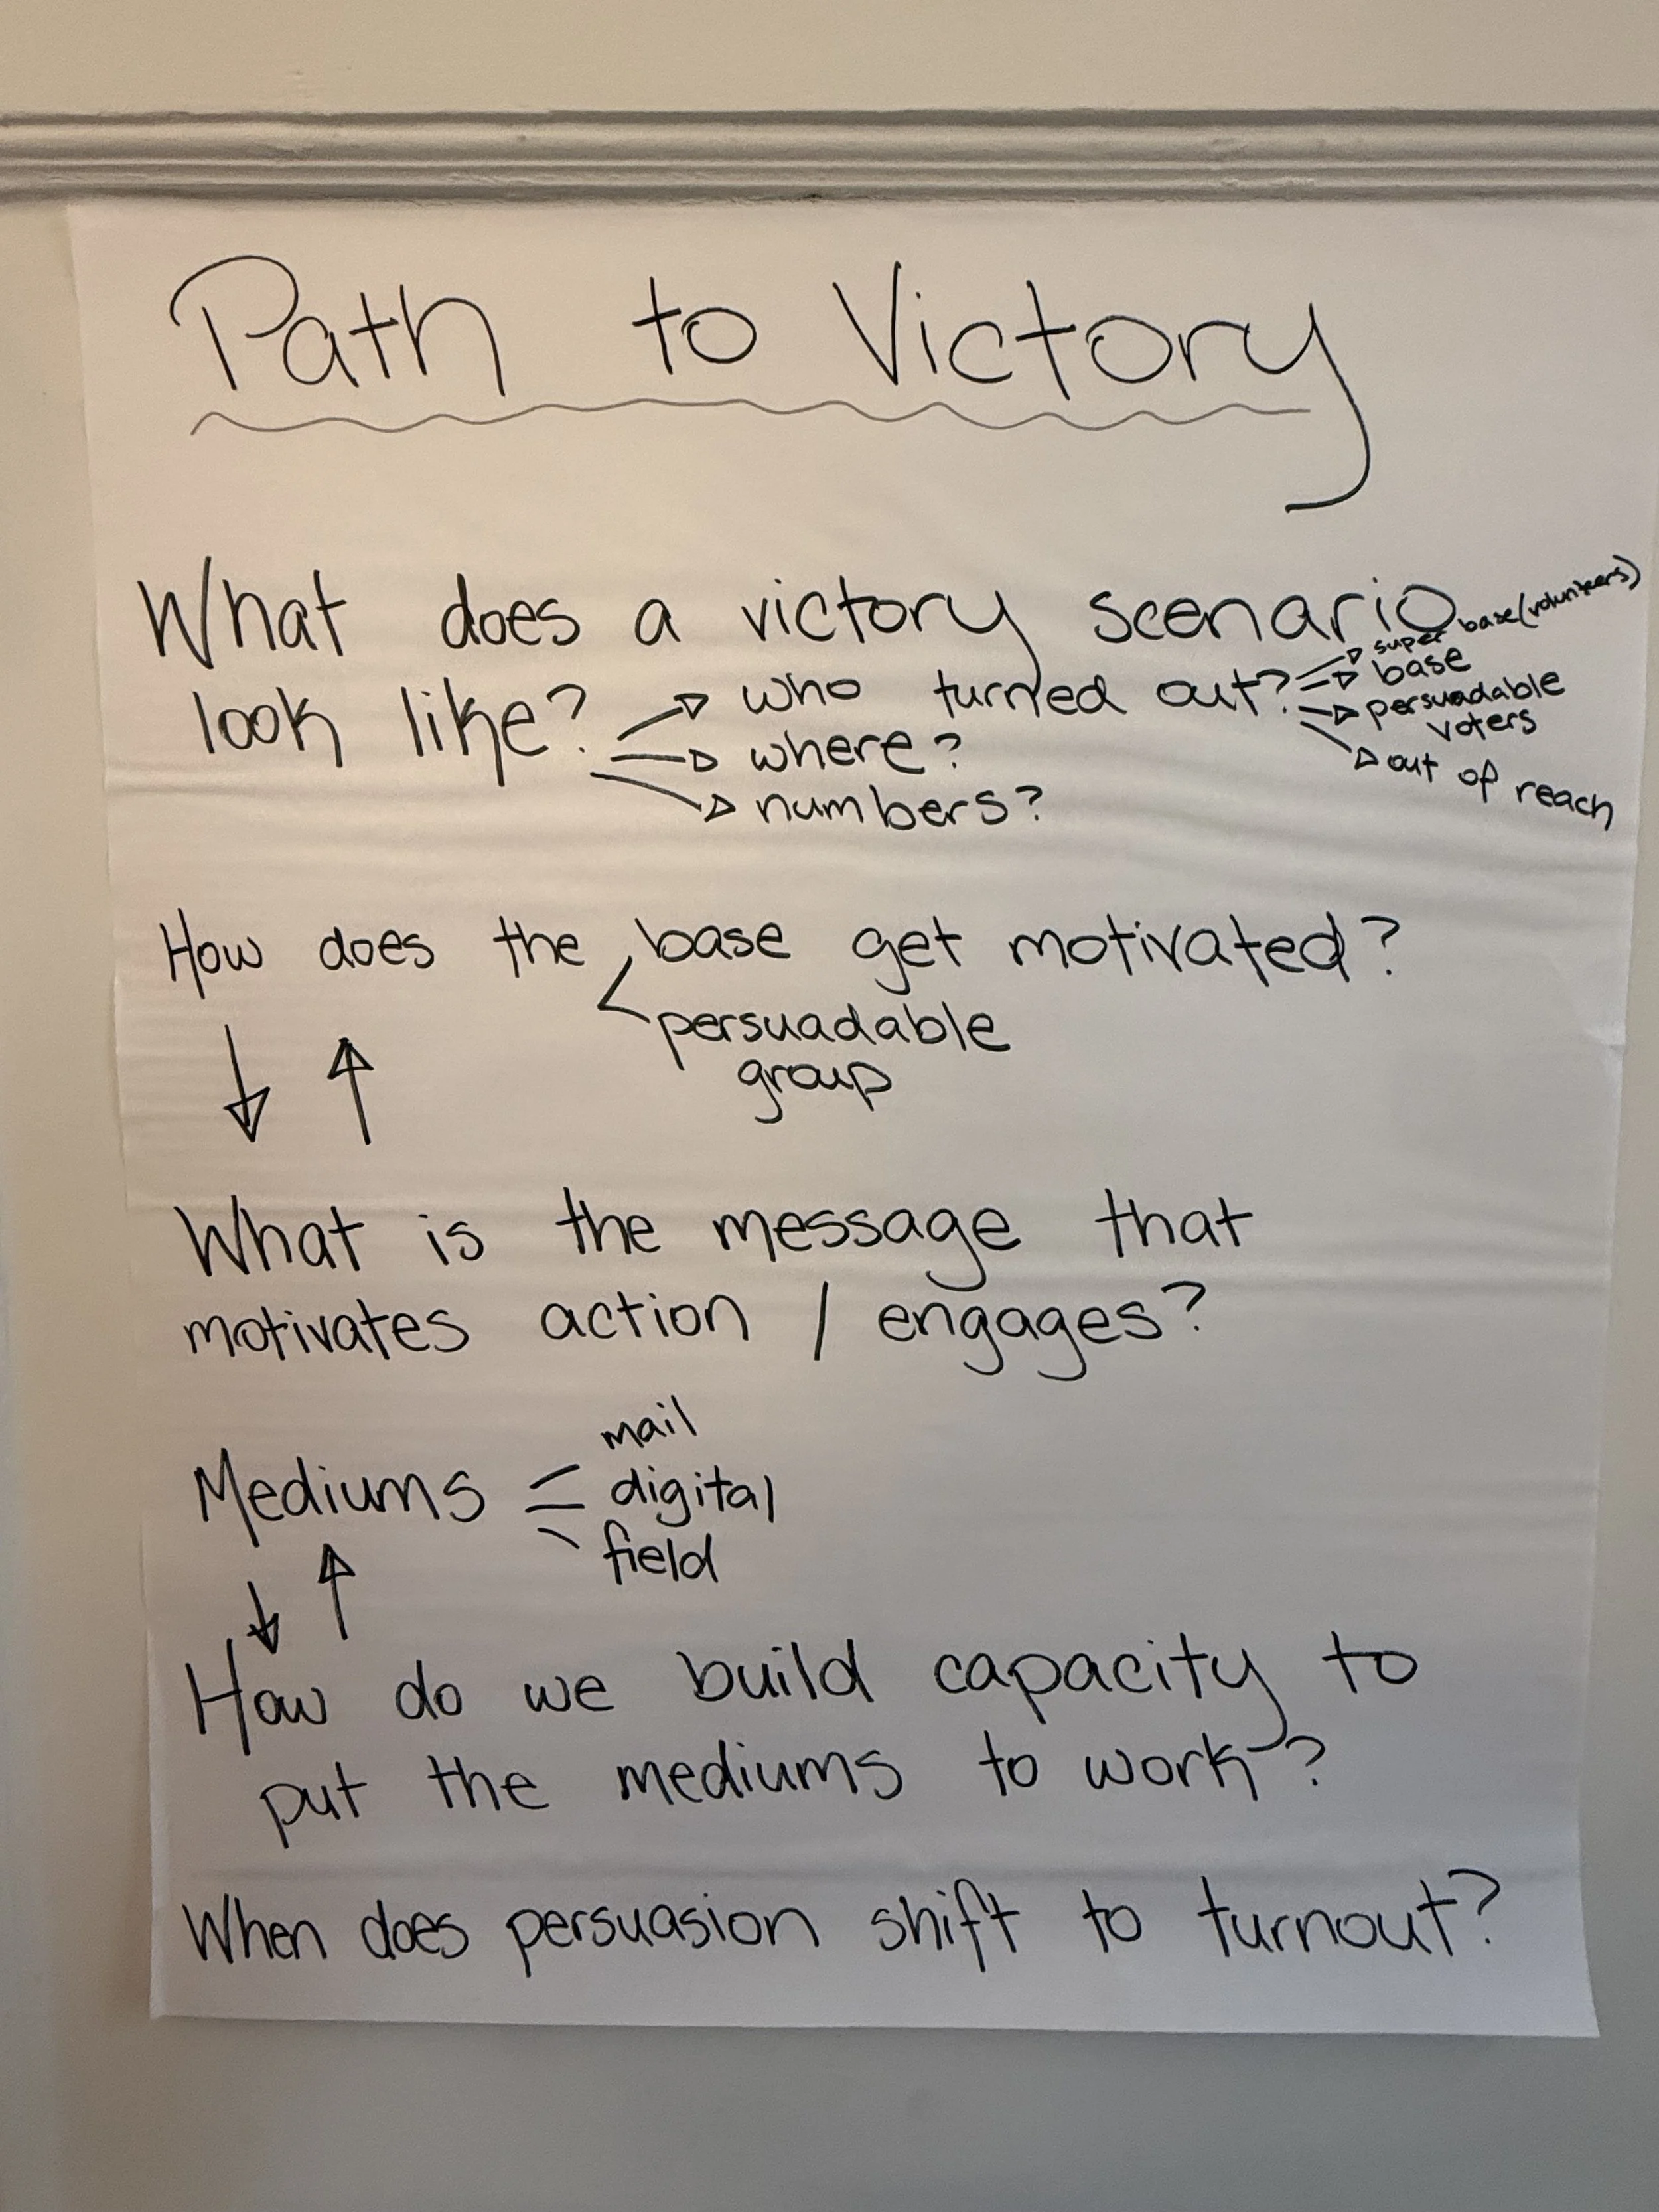 Path to Victory
What does a victory scenario
look like?
who turned out?
super base (volunteers)
base
persuadable
voters
out of reach
where?
numbers?
How does the base get motivated?
persuadable
group
What is the message that
motivates action / engages?
Mediums
mail
digital
field
How do we build capacity to
put the mediums to work?
When does persuasion shift to turnout?